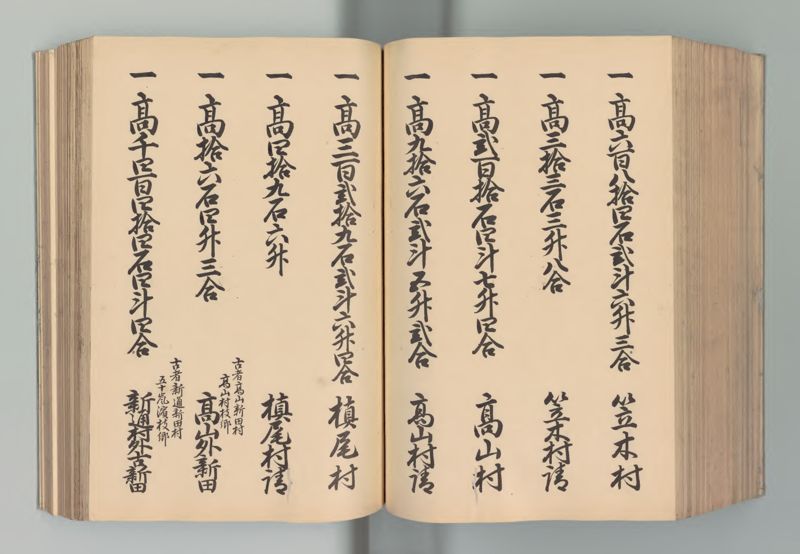 一 高六百八拾四石弐斗六升三合 笠木村
一 高三拾三石三升八合 笠木村請
一 高弐百拾石四斗七升四合 高山村
一 高九拾六石弐斗五升弐合 高山村請
一 高三百弐拾九石弐斗六升四合 槙尾村
一 高四拾九石六升 槙尾村請
古者高山新田村
高山村枝郷
一 高拾六石四升三合 高山外新田
古者新通新田村
五十嵐濱枝郷
一 高千四百四拾四石四斗四合 新通村外古新田